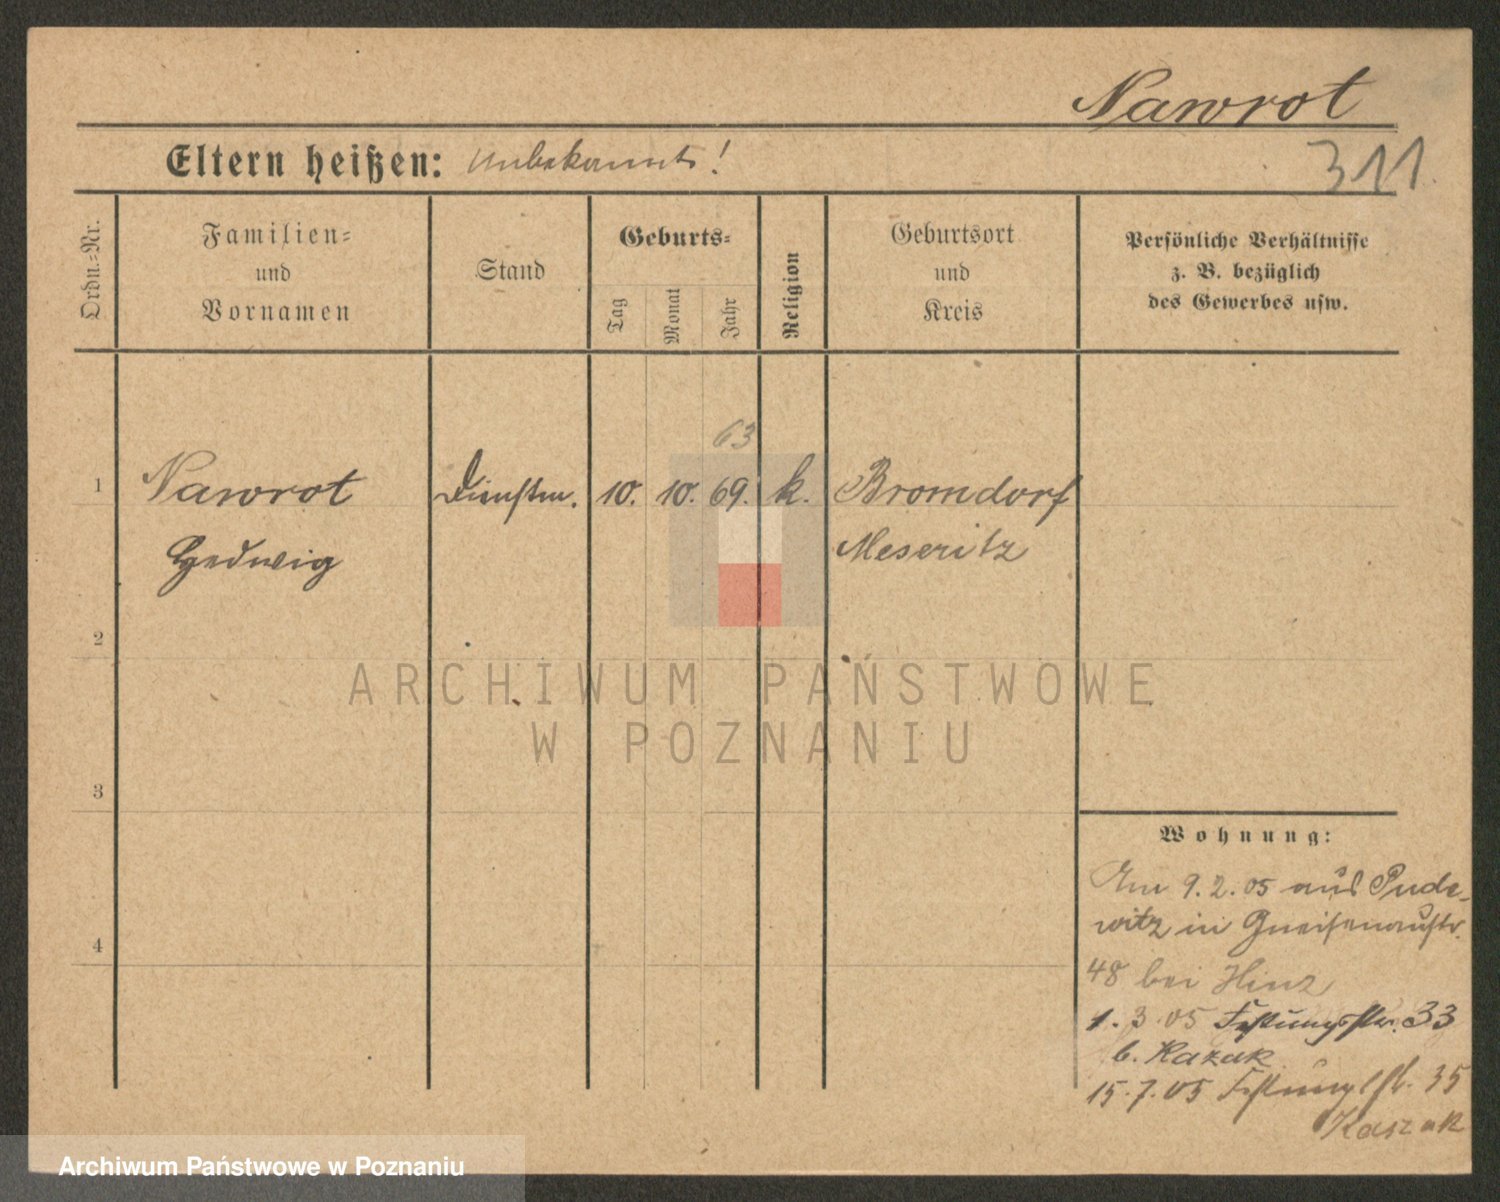 Nawrot
Eltern heißen: unbekannt!
311.
Ordn.-Nr.
Familien-
und
Vornamen
Stand
Geburts-
Tag
Monat
Jahr
Religion
Geburtsort
und
Kreis
Persönliche Verhältnisse
z. B. bezüglich
des Gewerbes usw.
63
1 Nawrot Dienstm. 10. 10. 69. k. Bromdorf
Hedwig Meseritz
2
3
4
Wohnung:
Am 9.2.05 aus Pude-
witz in Gneisenaustr.
48 bei Hinz
1.3.05 Festungsstr. 33
b. Kazak
15.7.05 Festungsstr. 35
Kaszak
ARCHIWUM PAŃSTWOWE
W POZNANIU
Archiwum Państwowe w Poznaniu